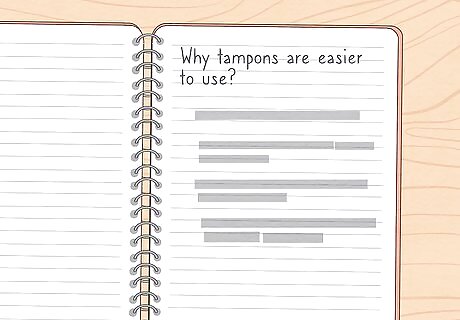 Why tampons are easier
to use?